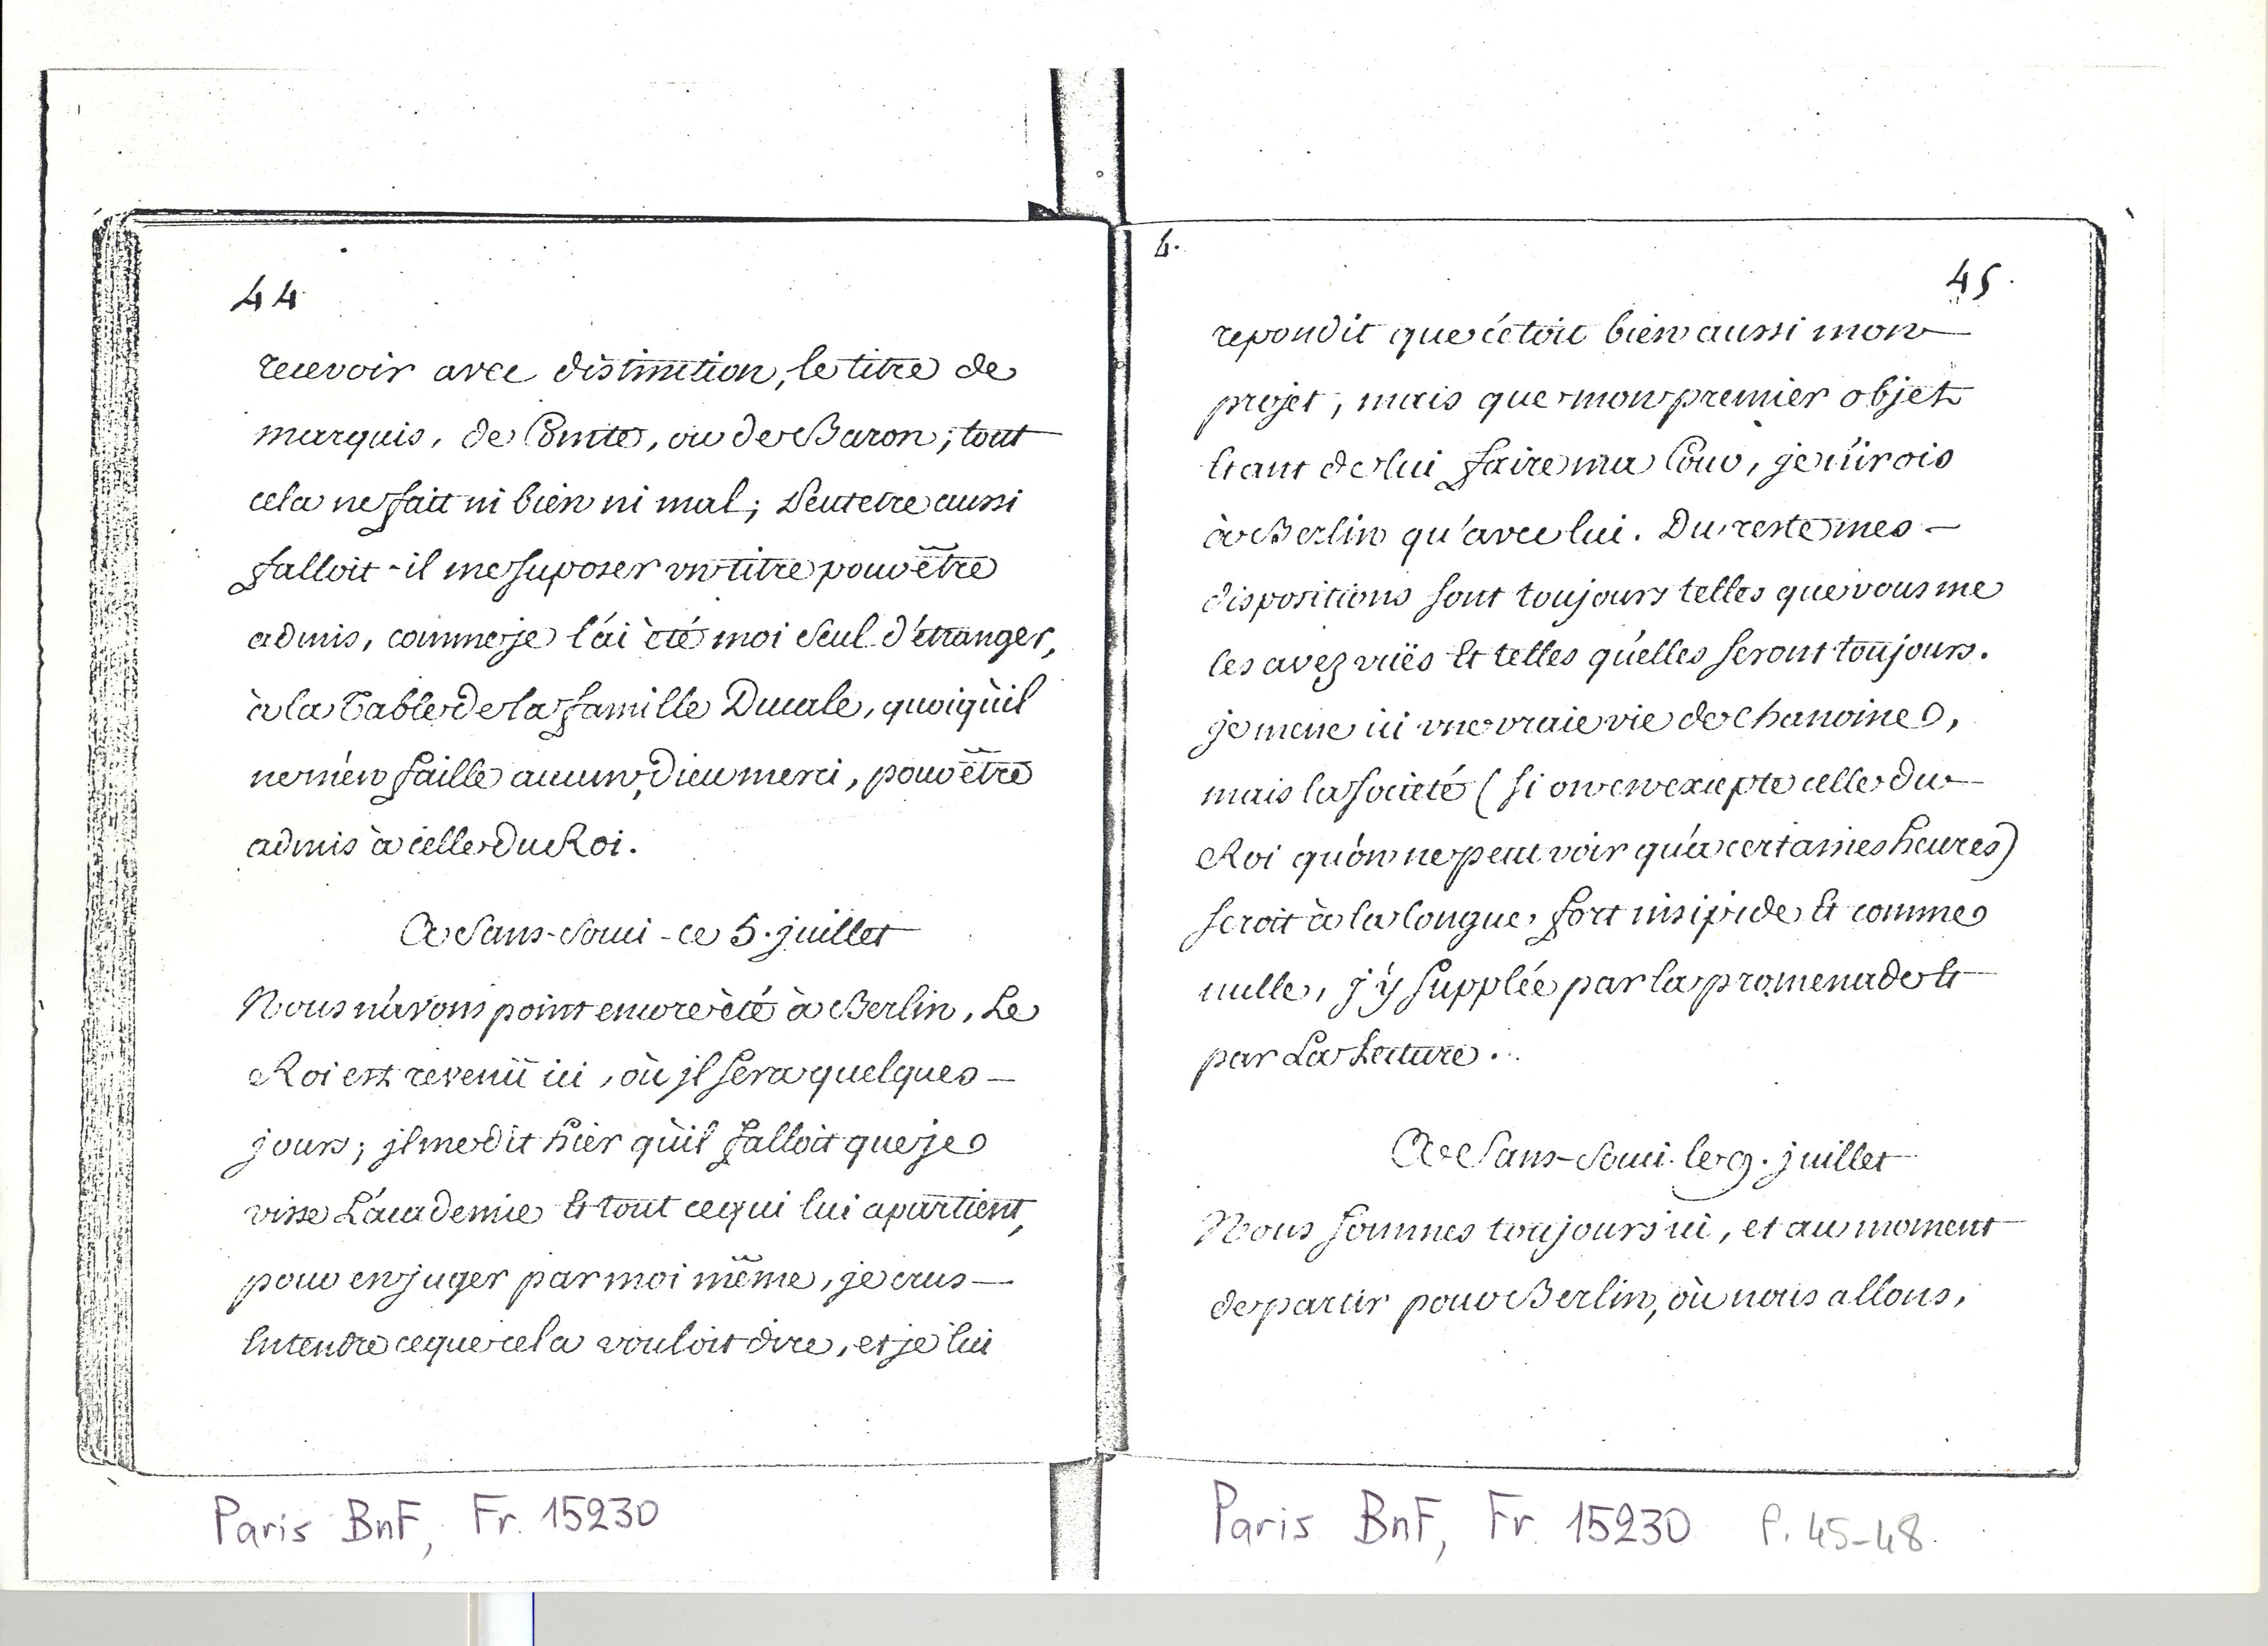 44
recevoir avec distinction, le titre de
marquis, de Comte, ou de Baron; tout
cela ne fait ni bien ni mal; Peutetre aussi
falloit-il me suposer un titre pour être
admis, comme je l'ai èté moi seul d'étranger,
à la Table de la famille Ducale, quoiqu'il
ne m'en faille aucun, Dieu merci, pour être
admis à celle du Roi.
A Sans-Souci - ce 5. juillet
Nous n'avons point encore èté à Berlin, Le
Roi est revenü ici, où jl sera quelques
jours; jl me dit hier qu'il falloit que je
visse L'academie Et tout ce qui lui apartient,
pour en juger par moi même, je crus
Entendre ce que cela vouloit dire, et je lui
4.
45.
repondit que c'étoit bien aussi mon
projet, mais que mon premier objet
Etant de lui faire ma Cour, je n'irois
à Berlin qu'avec lui. Du reste mes
dispositions sont toujours telles que vous me
les avez vuës Et telles qu'elles seront toujours.
je mene ici une vraie vie de chanoine,
mais la société (si on en excepte celle du
Roi qu'on ne peut voir qu'à certaines heures)
seroit à la longue, fort insipide Et comme
nulle, j'y supplée par la promenade Et
par La Lecture.
A Sans-Souci. le 9. juillet
Nous sommes toujours ici, et au moment
de partir pour Berlin, où nous allons,
Paris BnF, Fr. 15230
Paris BnF, Fr. 15230 P. 45-48.